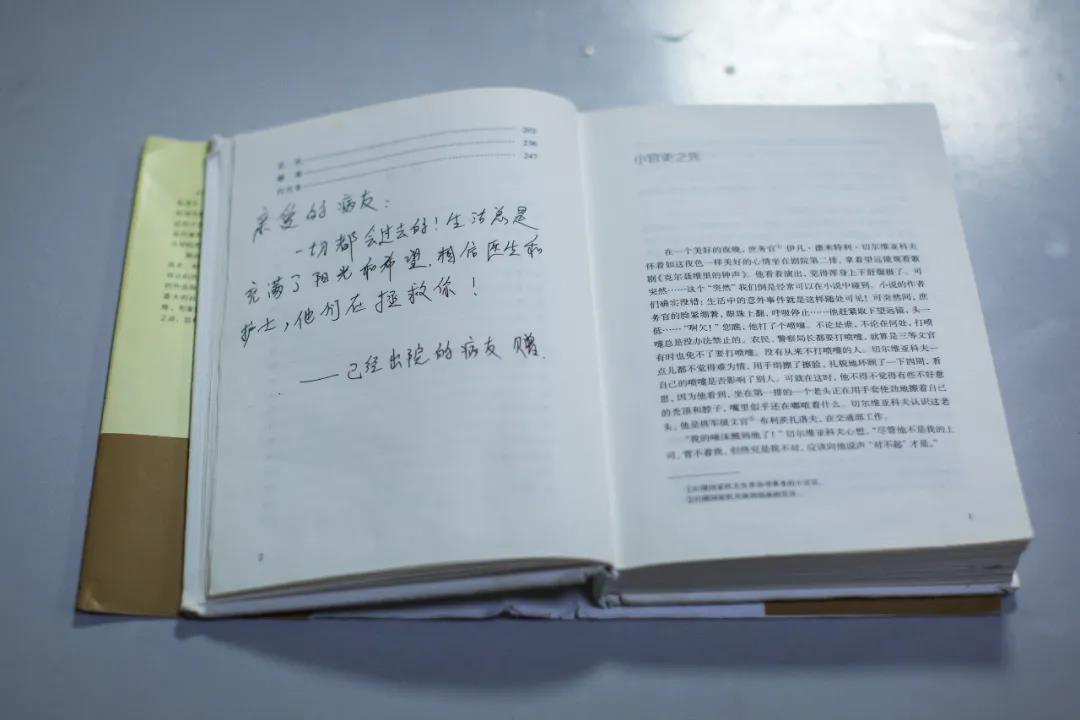 203
236
247
亲爱的病友：
一切都会过去的！生活总是
充满了阳光和希望，相信医生和
护士，他们在拯救你！
——已经出院的病友 赠
2
小官吏之死
在一个美好的夜晚，庶务官① 伊凡·德米特利·切尔维亚科夫
怀着如这夜色一样美好的心情坐在剧院第二排，拿着望远镜观看歌
剧《克尔聂维里的钟声》。他看着演出，觉得浑身上下舒服极了。可
突然……这个“突然”我们倒是经常可以在小说中碰到。小说的作者
们确实没错：生活中的意外事件就是这样随处可见！可突然间，庶
务官的脸紧绷着，眼珠上翻，呼吸停止……他赶紧取下望远镜，头一
低……“啊欠！”您瞧，他打了个喷嚏。不论是谁，不论在何处，打喷
嚏总是没办法禁止的。农民，警察局长都要打喷嚏，就算是三等文官
有时也免不了要打喷嚏。没有从来不打喷嚏的人。切尔维亚科夫一
点儿都不觉得难为情，用手绢擦了擦脸，礼貌地环顾了一下四周，看
自己的喷嚏是否影响了别人。可就在这时，他不得不觉得有些不好意
思，因为他看到，坐在第一排的一个老头正在用手套使劲地擦着自己
的秃顶和脖子，嘴里似乎还在嘟哝着什么。切尔维亚科夫认识这老
头。他是将军级文官② 布利茨扎洛夫，在交通部工作。
“我的唾沫溅到他了！”切尔维亚科夫心想，“尽管他不是我的上
司，管不着我，但终究是我不对，应该向他说声‘对不起’才是。”
1